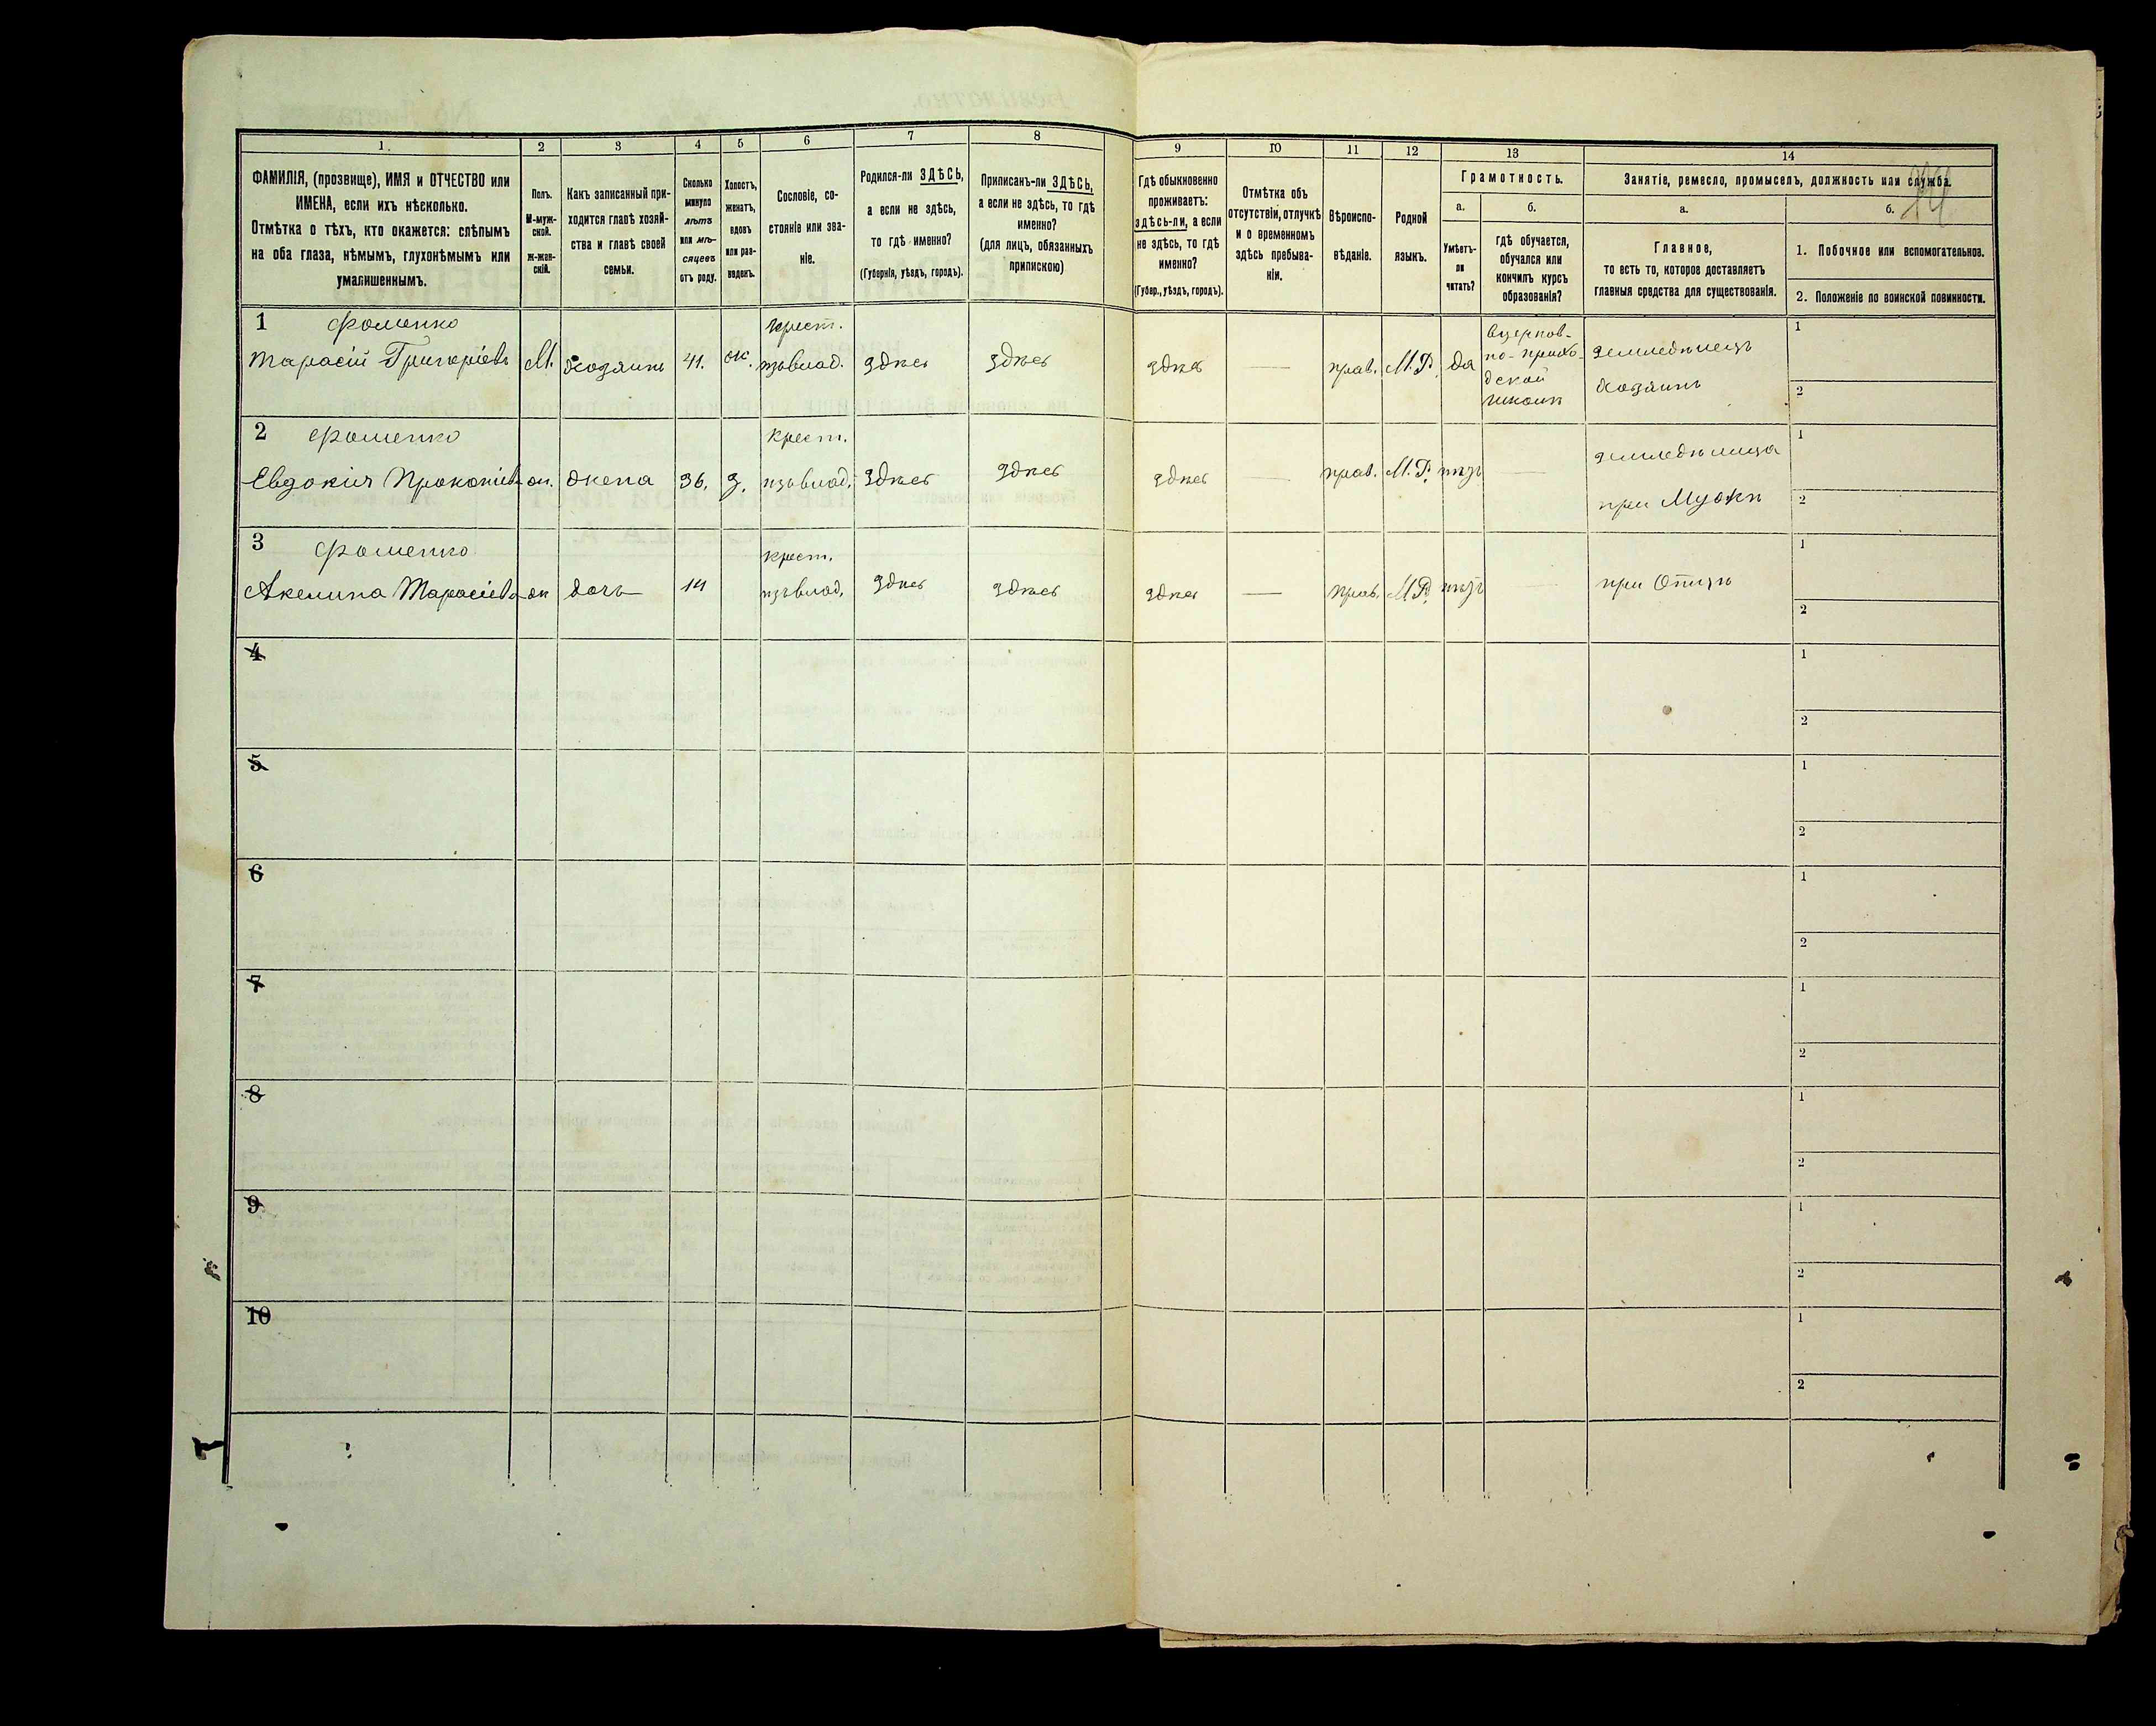 1.
ФАМИЛІЯ, (прозвище), ИМЯ и ОТЧЕСТВО или
ИМЕНА, если ихъ нѣсколько.
Отмѣтка о тѣхъ, кто окажется: слѣпымъ
на оба глаза, нѣмымъ, глухонѣмымъ или
умалишеннымъ.
2
Полъ.
М-муж-
ской.
ж-жен-
скій.
3
Какъ записанный при-
ходится главѣ хозяй-
ства и главѣ своей
семьи.
4
Сколько
минуло
лѣтъ
или мѣ-
сяцевъ
отъ роду.
5
Холостъ,
женатъ,
вдовъ
или раз-
веденъ.
6
Сословіе, со-
стояніе или зва-
ніе.
7
Родился-ли ЗДѢСЬ,
а если не здѣсь,
то гдѣ именно?
(Губернія, уѣздъ, городъ).
8
Приписанъ-ли ЗДѢСЬ,
а если не здѣсь, то гдѣ
именно?
(для лицъ, обязанныхъ
припискою)
9
Гдѣ обыкновенно
проживаетъ:
здѣсь-ли, а если
не здѣсь, то гдѣ
именно?
(Губер., уѣздъ, городъ).
10
Отмѣтка объ
отсутствіи, отлучкѣ
и о временномъ
здѣсь пребыва-
ніи.
11
Вѣроиспо-
вѣданіе.
12
Родной
языкъ.
13
Грамотность.
а.
Умѣетъ-
ли
читать?
б.
гдѣ обучается,
обучался или
кончилъ курсъ
образованія?
14
Занятіе, ремесло, промыселъ, должность или служба.
а.
Главное,
то есть то, которое доставляетъ
главныя средства для существованія.
б.
1. Побочное или вспомогательное.
2. Положеніе по воинской повинности.
1 Фоменко
Тарасій Григоріевъ М. Хозяинъ 41. ж. крест. изъ влад. здѣсь здѣсь здѣсь — прав. М.Р. да
В церков-
но-прихо-
дской
школѣ
земледѣлецъ
Хозяинъ
1
2
2 Фоменко
Евдокия Прокопіева ж. жена 36. з. крест. изъ влад. здѣсь здѣсь здѣсь — прав. М.Р. нѣтъ —
земледѣлица
при Мужѣ
1
2
3 Фоменко
Акелина Тарасіева ж дочь 14 крест. изъ влад. здѣсь здѣсь здѣсь — прав. М.Р. нѣтъ —
при Отцѣ
1
2
4
1
2
5
1
2
6
1
2
7
1
2
8
1
2
9
1
2
10
1
2